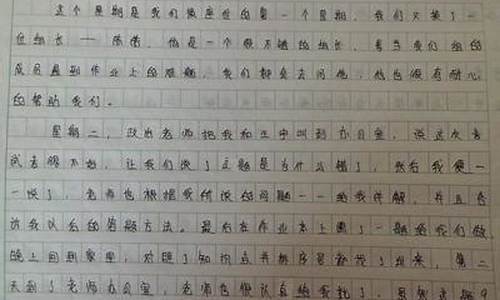 这个星期是我们换座位的第一个星期，我们又换了一
位组长——陈倩，他是一个很不错的组长，每当我们组的
成员遇到作业上的难题，我们都会去问他，他也很有耐心
的帮助我们。
星期二，政治老师把我和王宇叫到办公室，说这次考
试考得不好，让我们说了主题是为什么错了，然后我便一
一说了，老师也根据我所说的问题一一给我讲解，并且告
诉我以后的答题方法。最后在作业本上圈了一题给我们做，
晚上回到家里，对照了知识点并按序号都找了出来，第二
天到了老师办公室，老师也很认真给我批了，